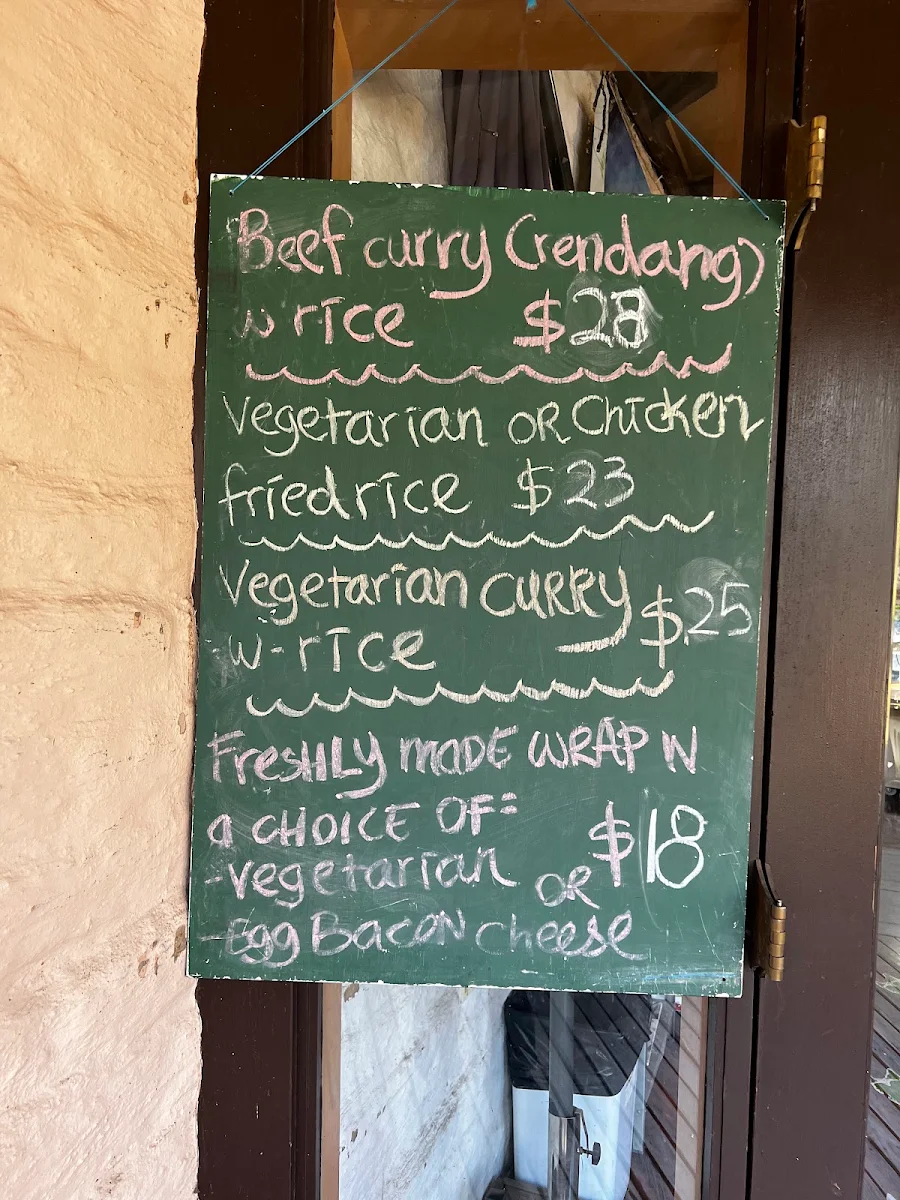 Beef curry (rendang)
w rice $28
Vegetarian OR Chicken
fried rice $23
Vegetarian CURRY $25
w-rice
FresHLY maDE WRAP N
a CHOICE OF=
-vegetarian OR $18
-Egg Bacon cheese